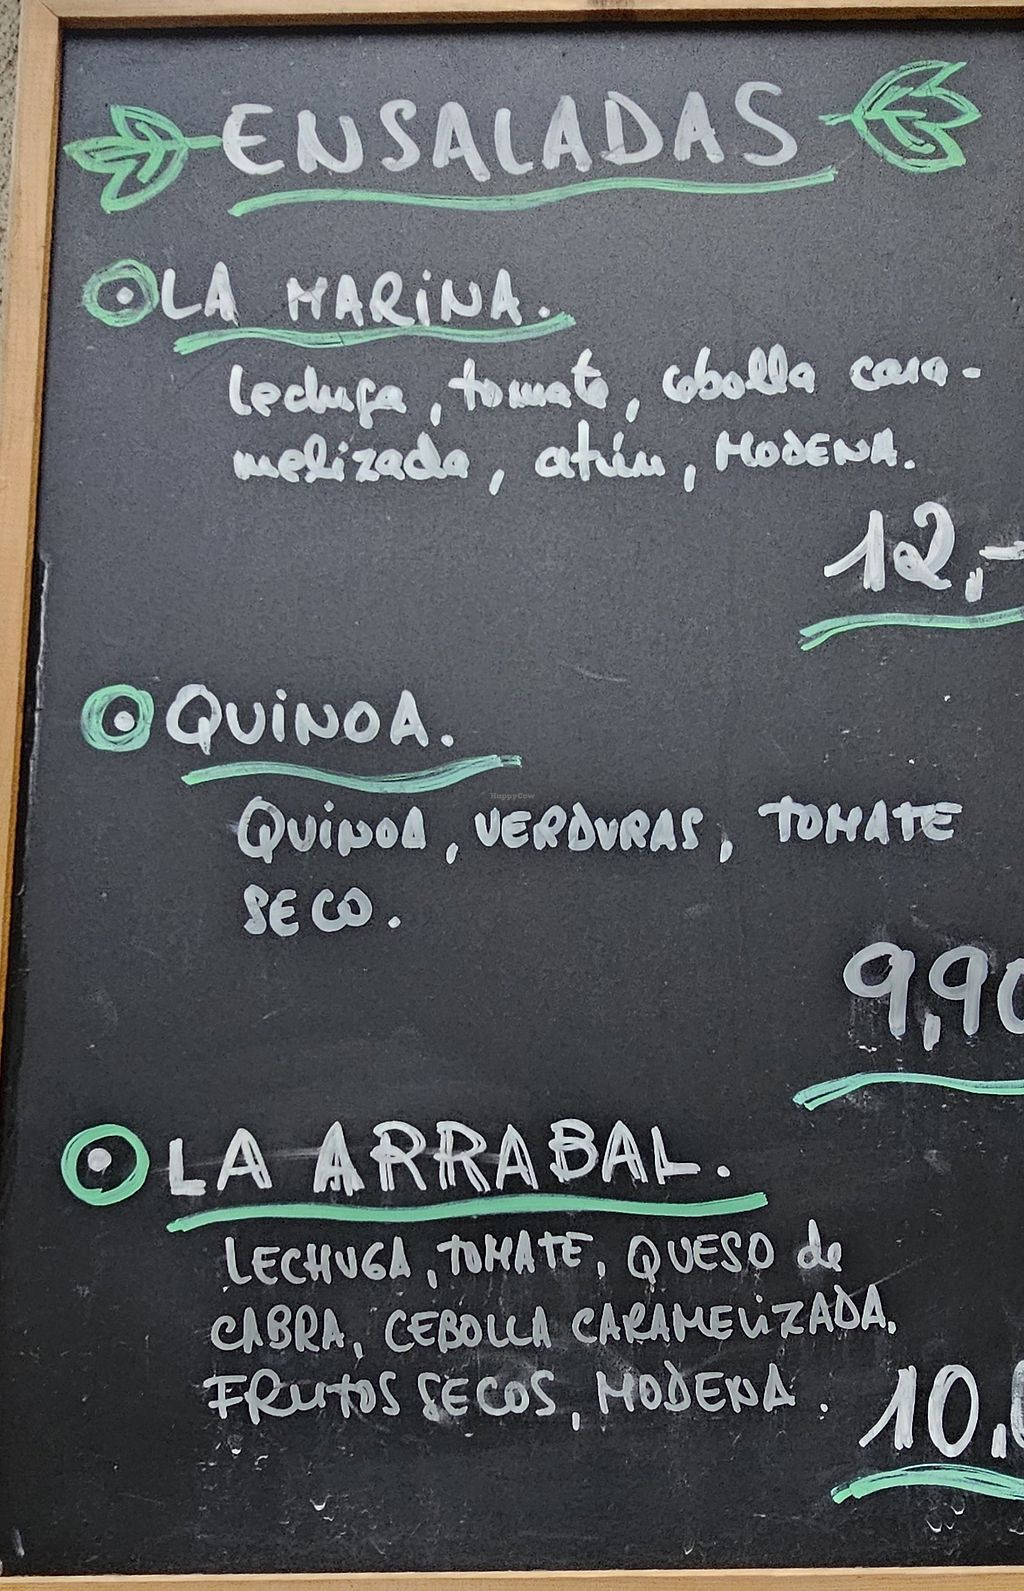 ENSALADAS
LA MARINA.
lechuga, tomate, cebolla cara-
melizada, atún, MODENA.
12,-
QUINOA.
HappyCow
QUINOA, VERDURAS, TOMATE
SECO.
9,90
LA ARRABAL.
LECHUGA, TOMATE, QUESO de
CABRA, CEBOLLA CARAMELIZADA,
FRUTOS SECOS, MODENA.
10,